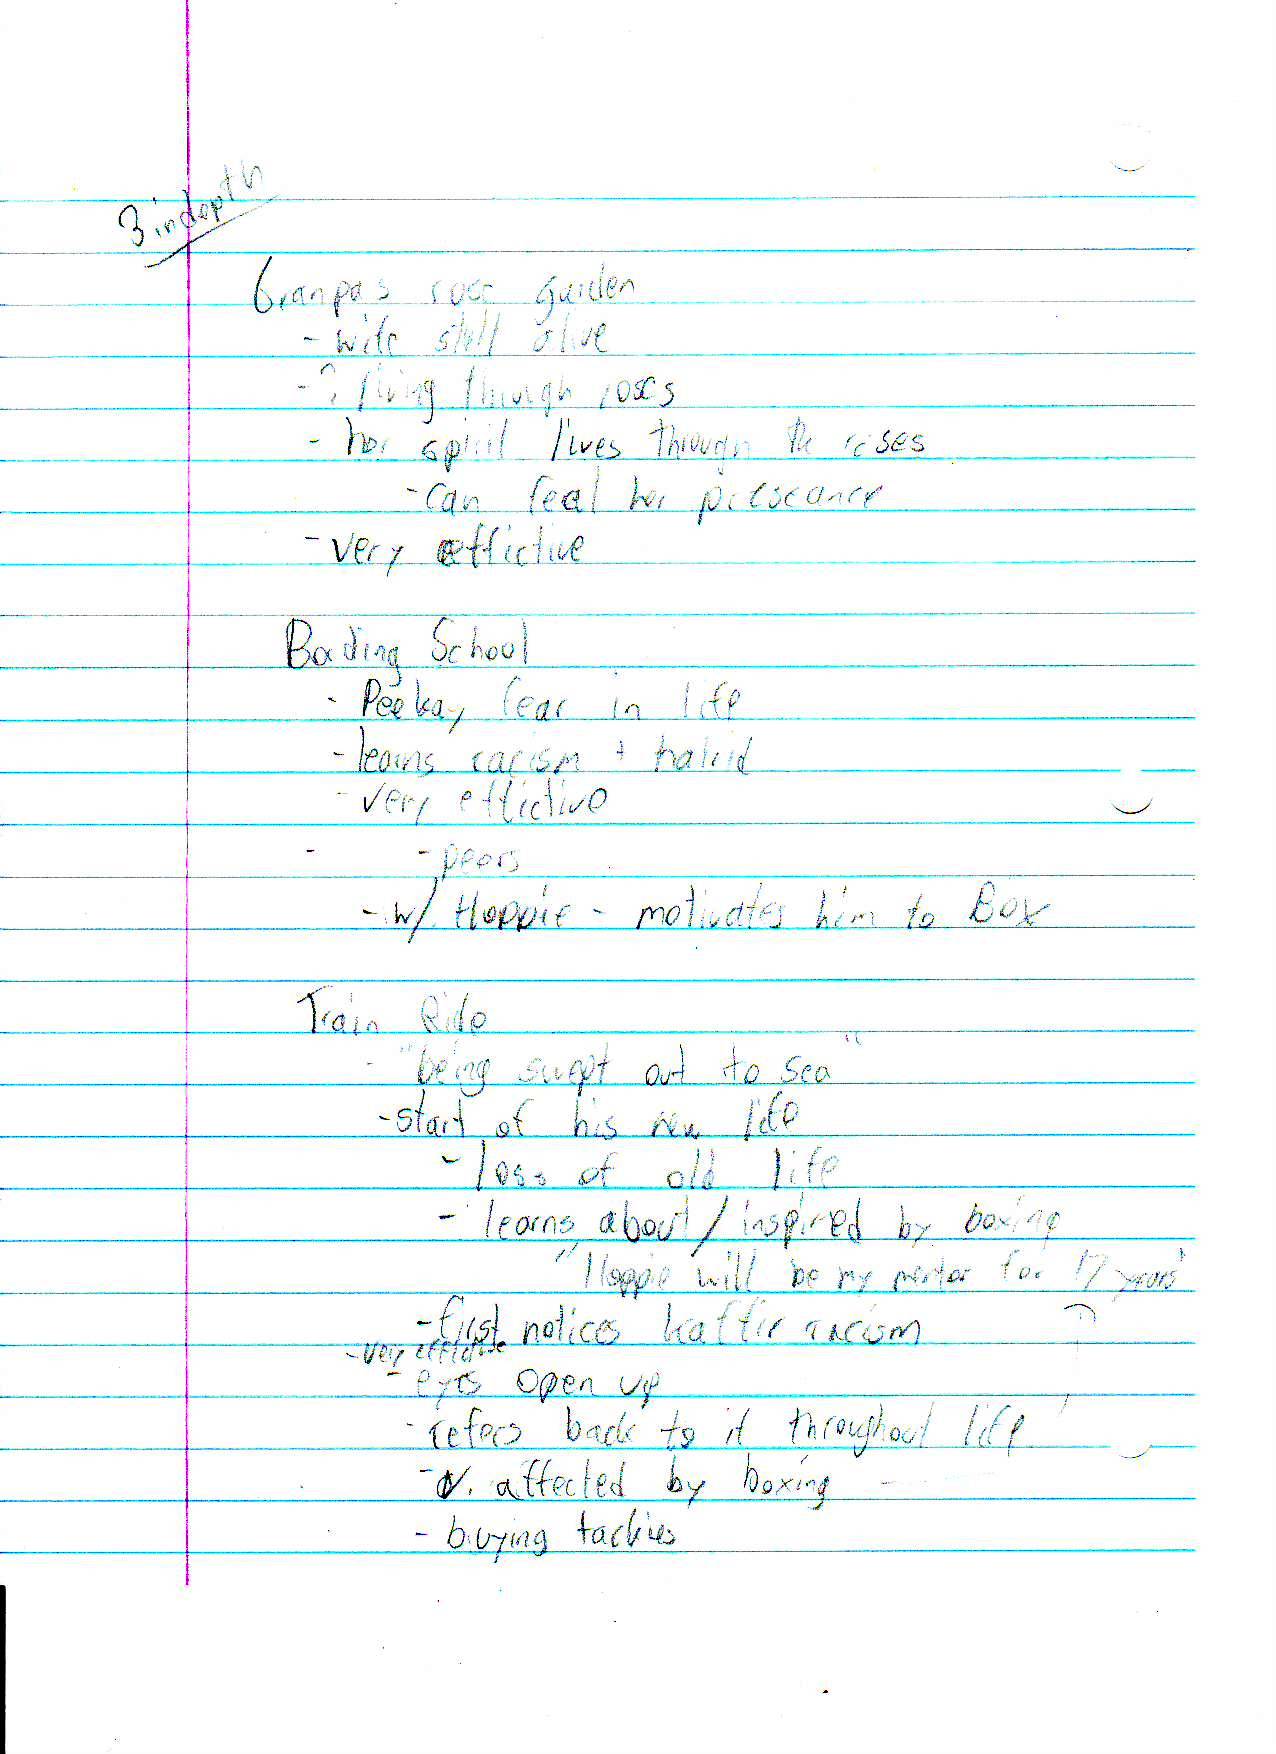 3 indepth
Granpa's rose garden
- wife still alive
- ? living through roses
- her spirit lives through the roses
- can feal her preseance
- very effictive
Boarding School
- Peekay fear in life
- learns racism + hatrid
- very effictive
- - peers
- w/ Hoppie - motivates him to Box
Train Ride
- "being swept out to sea"
- start of his new life
- loss of old life
- learns about / inspired by boxing
"Hoppie will be my mentor for 17 years"
- first notices kaffir racism
- very effictive
- eyes open up
- refers back to it throughout life
- v. affected by boxing
- buying tackies